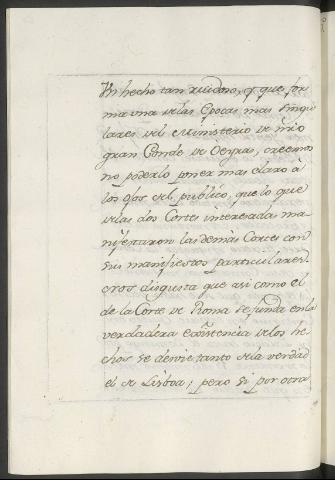 Un hecho tan ruidoso, y que for
ma una velas Epocas mas singu
lares vel Ministerio ve nrõ
gran Conde ve Oeyras, creemos
no poderlo poner mas claro à
los ojos vel publico, que lo que
velas dos Cortes interesadas ma-
nifestaron las demàs Cortes con
sus manifiestos particulares:
disgusta que asi como el
de la Corte ve Roma se funda enla
verdadera existencia velos he
chos se desvie tanto vela verdad
el ve Lisboa; pero si por otra